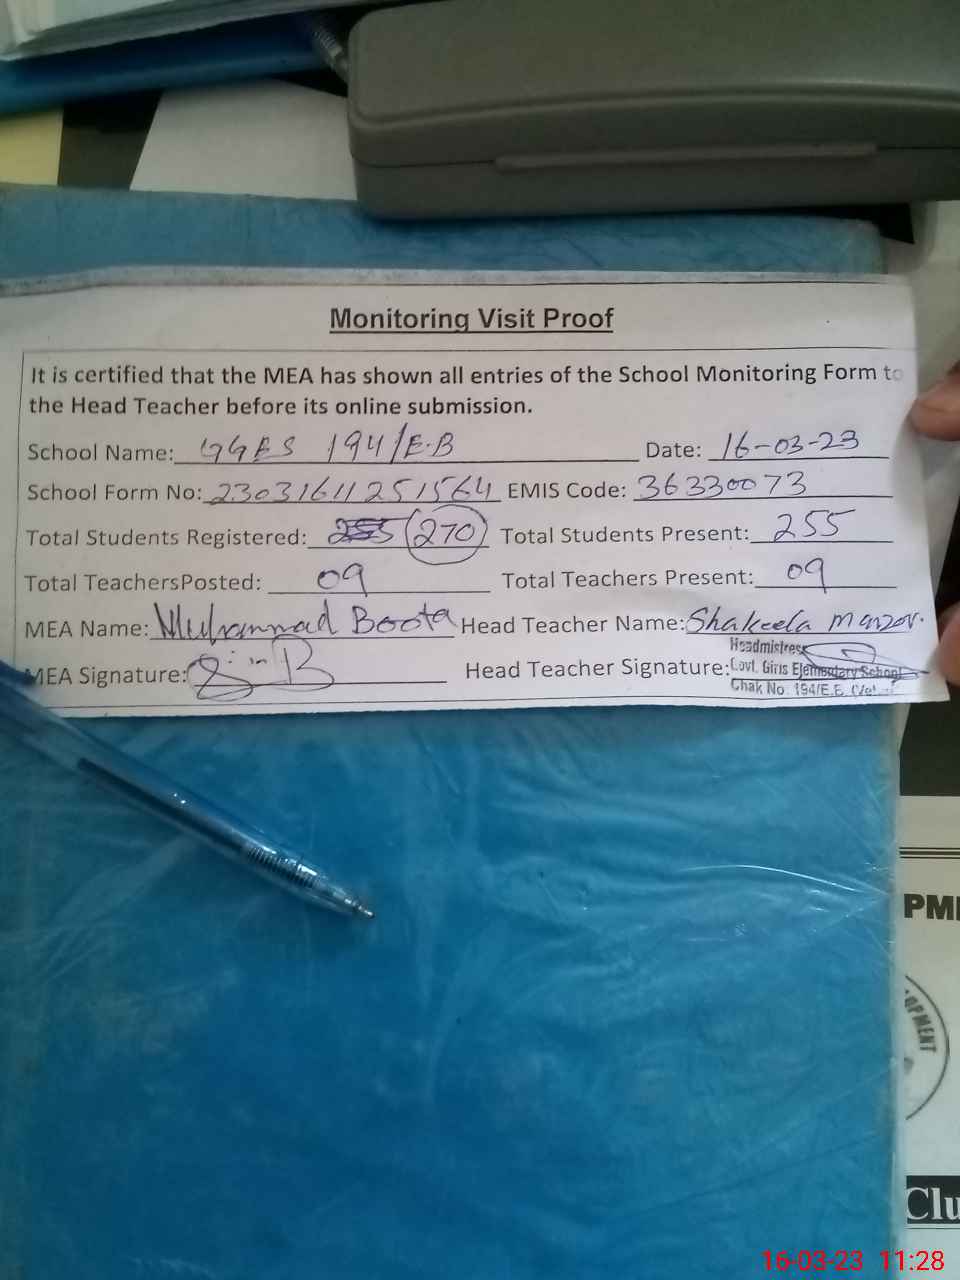 Monitoring Visit Proof
It is certified that the MEA has shown all entries of the School Monitoring Form to
the Head Teacher before its online submission.
School Name: GGES 194/E-B Date: 16-03-23
School Form No: 23031611251564 EMIS Code: 36330073
Total Students Registered: 255 270 Total Students Present: 255
Total TeachersPosted: 09 Total Teachers Present: 09
MEA Name: Muhammad Boota Head Teacher Name: Shakeela Manzor.
MEA Signature: Head Teacher Signature:
Headmistress
Govt. Girls Elementary School
Chak No. 194/E.B.
PM
OPMENT
Clu
16-03-23 11:28